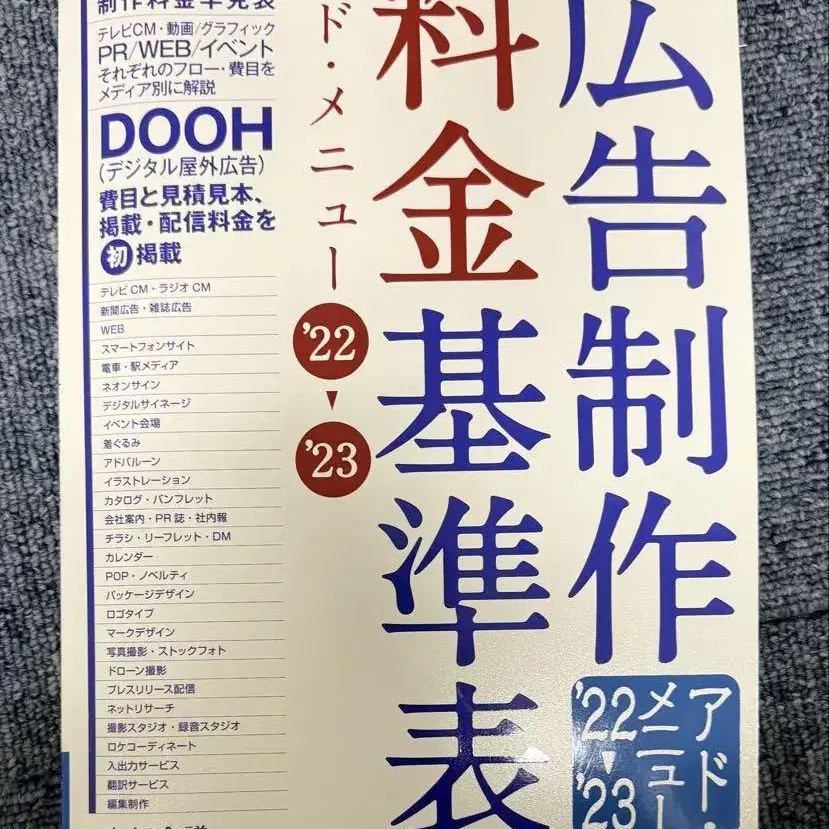 広告制作
料金基準表
アド・メニュー
'22▼'23
ド・メニュー
'22
▼
'23
制作料金早見表
テレビCM・動画/グラフィック
PR/WEB/イベント
それぞれのフロー・費目を
メディア別に解説
DOOH
(デジタル屋外広告)
費目と見積見本、
掲載・配信料金を
初掲載
テレビCM・ラジオCM
新聞広告・雑誌広告
WEB
スマートフォンサイト
電車・駅メディア
ネオンサイン
デジタルサイネージ
イベント会場
着ぐるみ
アドバルーン
イラストレーション
カタログ・パンフレット
会社案内・PR誌・社内報
チラシ・リーフレット・DM
カレンダー
POP・ノベルティ
パッケージデザイン
ロゴタイプ
マークデザイン
写真撮影・ストックフォト
ドローン撮影
プレスリリース配信
ネットリサーチ
撮影スタジオ・録音スタジオ
ロケコーディネート
入出力サービス
翻訳サービス
編集制作